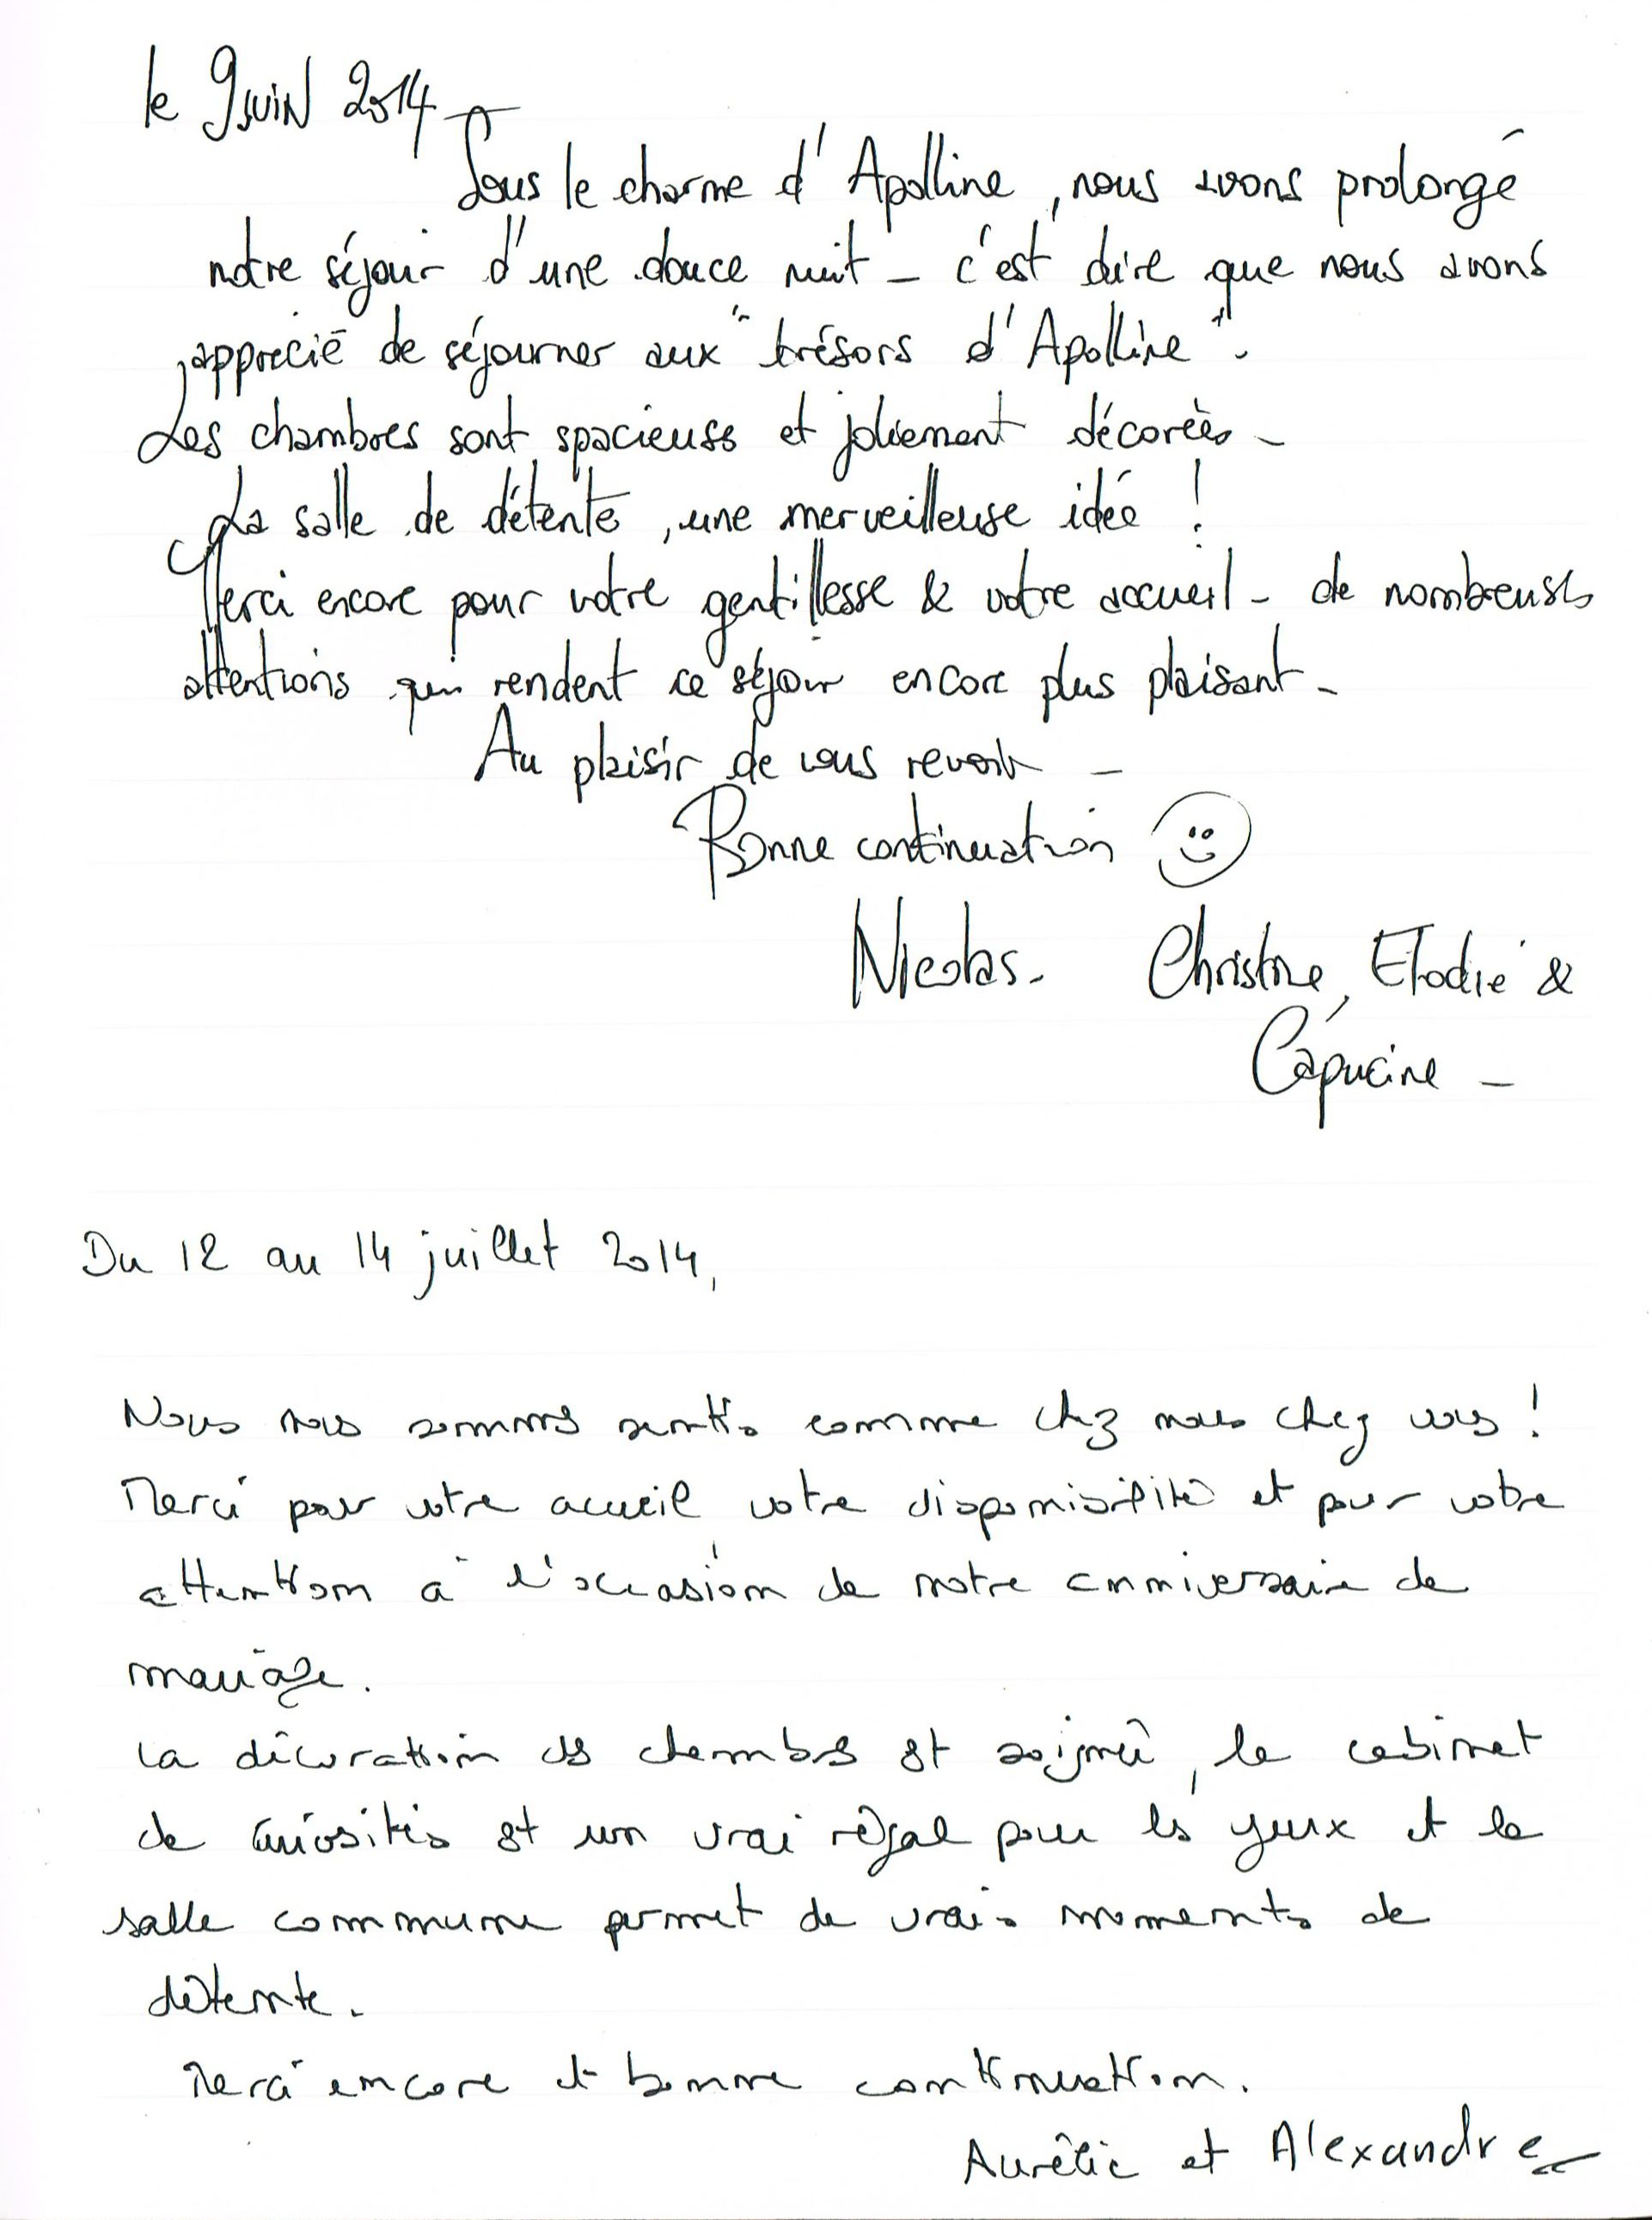 le 9 juin 2014
Sous le charme d'Apolline, nous avons prolongé
notre séjour d'une douce nuit – c'est dire que nous avons
apprécié de séjourner aux "trésors d'Apolline".
Les chambres sont spacieuses et joliement décorées –
La salle de détente, une merveilleuse idée !
Merci encore pour votre gentillesse & votre accueil – de nombreuses
attentions qui rendent ce séjour encore plus plaisant –
Au plaisir de vous revoir –
Bonne continuation ☺
Nicolas. Christine, Elodie &
Capucine –
Du 12 au 14 juillet 2014,
Nous nous sommes sentis comme chez nous chez vous !
Merci pour votre accueil, votre disponibilité et pour votre
attention à l'occasion de notre anniversaire de
mariage.
La décoration des chambres est soignée, le cabinet
de curiosités est un vrai régal pour les yeux et la
salle commune permet de vrais moments de
détente.
Merci encore et bonne continuation.
Aurélie et Alexandre